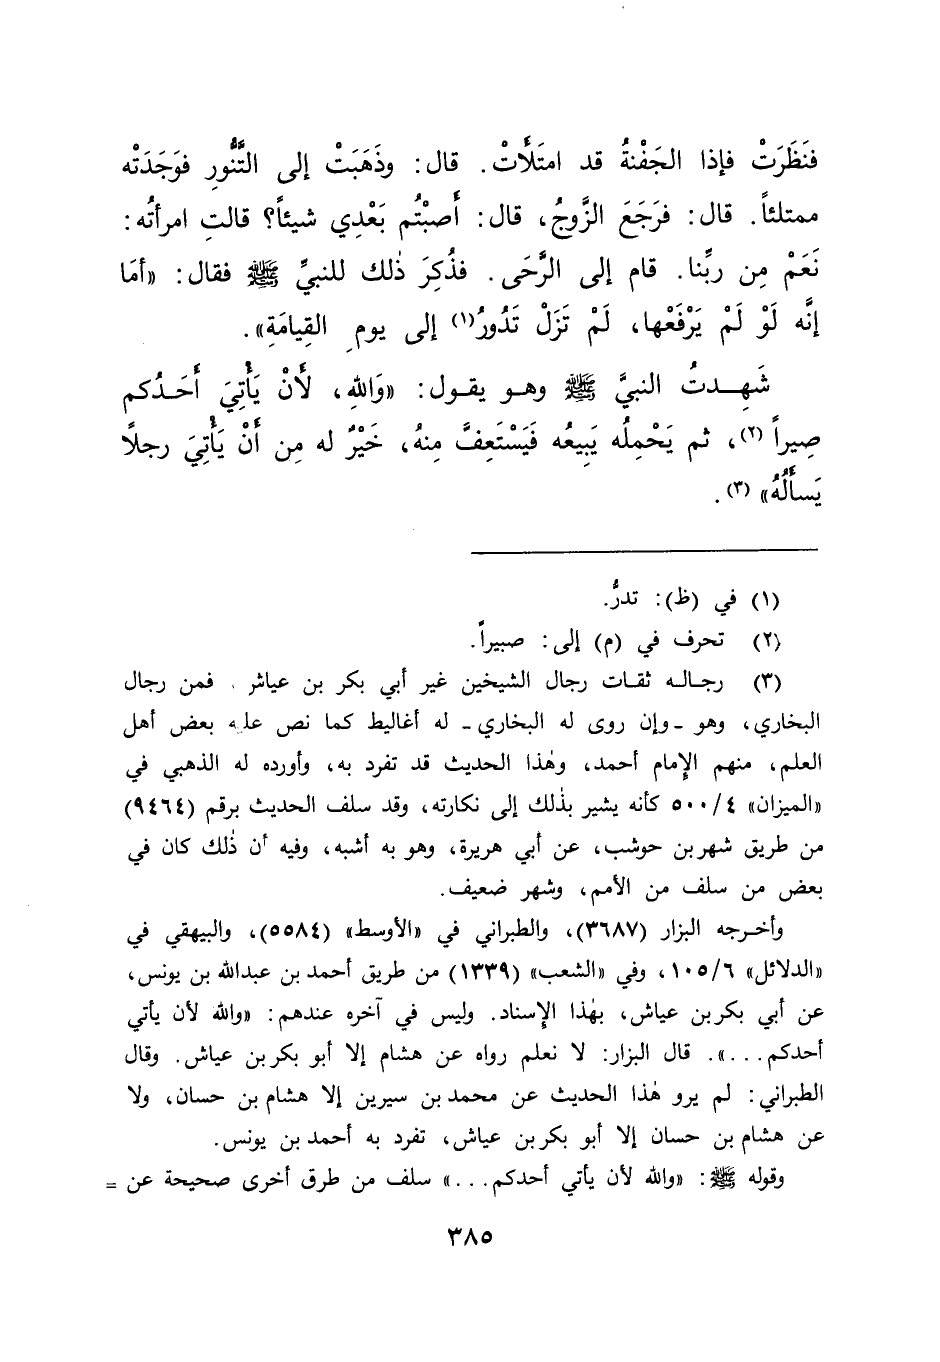 فنَظَرَتْ فإذا الجَفْنةُ قد امتَلَأَتْ. قال: وذَهَبَتْ إلى التَّنُّورِ فوَجَدَتْه
ممتلئاً. قال: فرَجَعَ الزَّوجُ، قال: أَصبْتُم بَعْدِي شيئاً؟ قالتِ امرأتُه:
نَعَمْ مِن ربِّنا. قام إلى الرَّحَى. فذُكِرَ ذٰلك للنبيِّ ﷺ فقال: «أمَا
إنَّه لَوْ لَمْ يَرْفَعْها، لَمْ تَزَلْ تَدُورُ(١) إلى يومِ القِيامَةِ».
شَهِدتُ النبيَّ ﷺ وهو يقول: «وَاللهِ، لَأَنْ يَأْتِيَ أَحَدُكم
صِيراً (٢)، ثم يَحْمِلُه يَبِيعُه فَيَسْتَعِفَّ مِنهُ، خَيْرٌ له مِن أَنْ يَأْتِيَ رجلاً
يَسأَلُهُ» (٣).
(١) في (ظ): تدرُّ.
(٢) تحرف في (م) إلى: صبيراً.
(٣) رجاله ثقات رجال الشيخين غير أبي بكر بن عياش. فمن رجال
البخاري، وهو -وإن روى له البخاري- له أغاليط كما نص عليه بعض أهل
العلم، منهم الإمام أحمد، وهٰذا الحديث قد تفرد به، وأورده له الذهبي في
«الميزان» ٥٠٠/٤ كأنه يشير بذٰلك إلى نكارته، وقد سلف الحديث برقم (٩٤٦٤)
من طريق شهر بن حوشب، عن أبي هريرة، وهو به أشبه، وفيه أن ذٰلك كان في
بعض من سلف من الأمم، وشهر ضعيف.
وأخرجه البزار (٣٦٨٧)، والطبراني في «الأوسط» (٥٥٨٤)، والبيهقي في
«الدلائل» ١٠٥/٦، وفي «الشعب» (١٣٣٩) من طريق أحمد بن عبدالله بن يونس،
عن أبي بكر بن عياش، بهٰذا الإسناد. وليس في آخره عندهم: «والله لأن يأتي
أحدكم...». قال البزار: لا نعلم رواه عن هشام إلا أبو بكر بن عياش. وقال
الطبراني: لم يرو هٰذا الحديث عن محمد بن سيرين إلا هشام بن حسان، ولا
عن هشام بن حسان إلا أبو بكر بن عياش، تفرد به أحمد بن يونس.
وقوله ﷺ: «والله لأن يأتي أحدكم...» سلف من طرق أخرى صحيحة عن =
٣٨٥